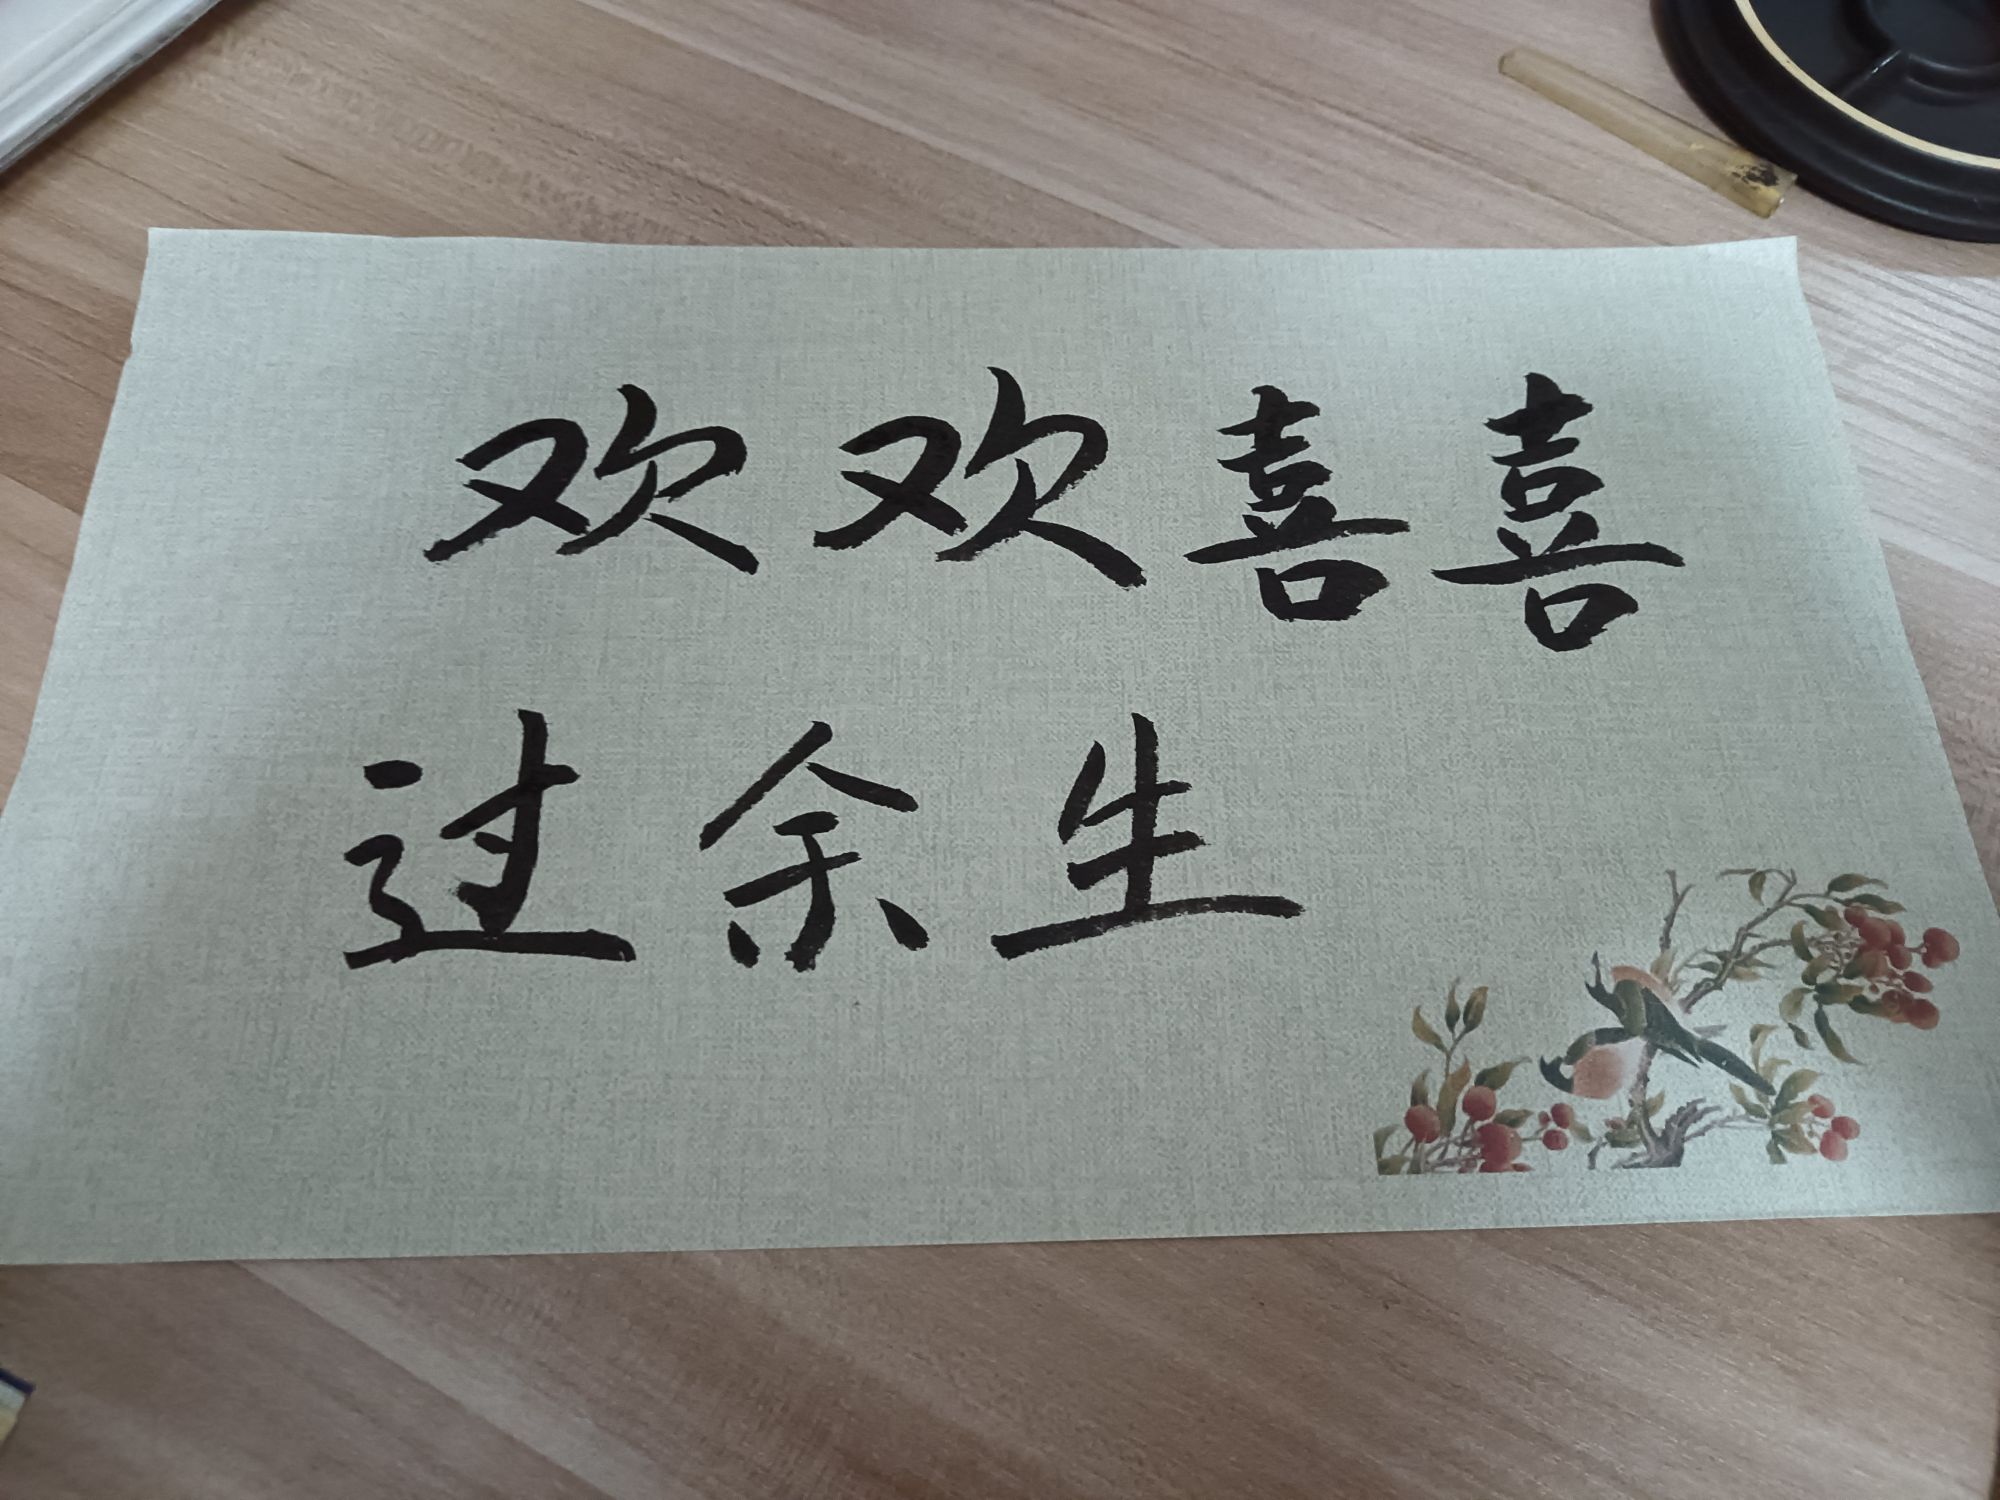 欢欢喜喜
过余生